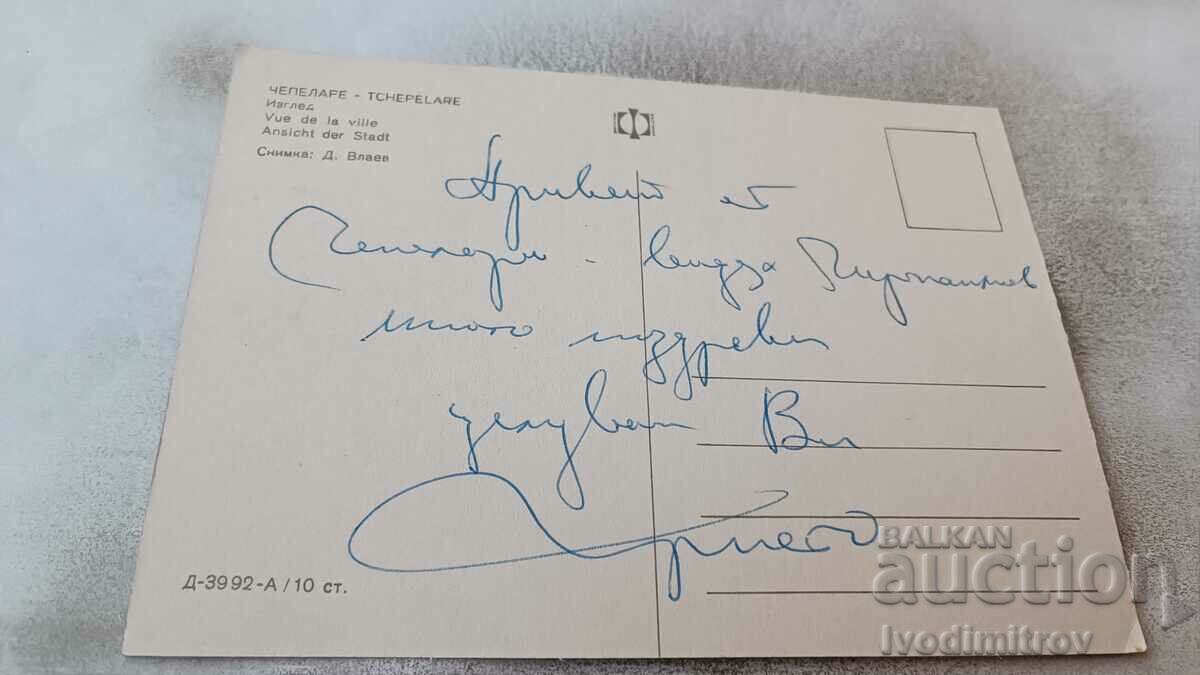 ЧЕПЕЛАРЕ - TCHEPELARE
Изглед
Vue de la ville
Ansicht der Stadt
Снимка: Д. Влаев
Привет от
Чепеларе -
много поздрави
целувам Ви
Христо
Д-3992-А/10 ст.
BALKAN
auction
Ivodimitrov